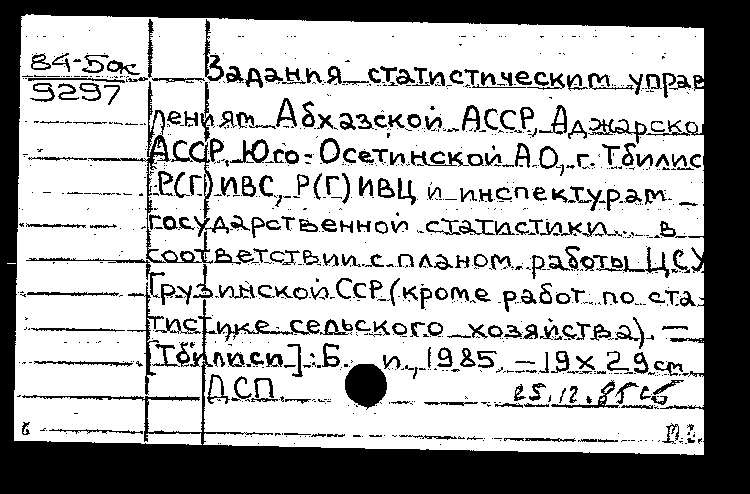 84-5ок
9297
Задания статистическим управ
лениям Абхазской АССР, Аджарско
АССР, Юго-Осетинской АО, г. Тбилис
Р(Г)ИВС, Р(Г)ИВЦ и инспектурам
государственной статистики... в
соответствии с планом работы ЦСУ
Грузинской ССР (кроме работ по ста-
тистике сельского хозяйства). —
[Тбилиси]: Б. и., 1985. — 19 x 29 см.
ДСП
25.12.85